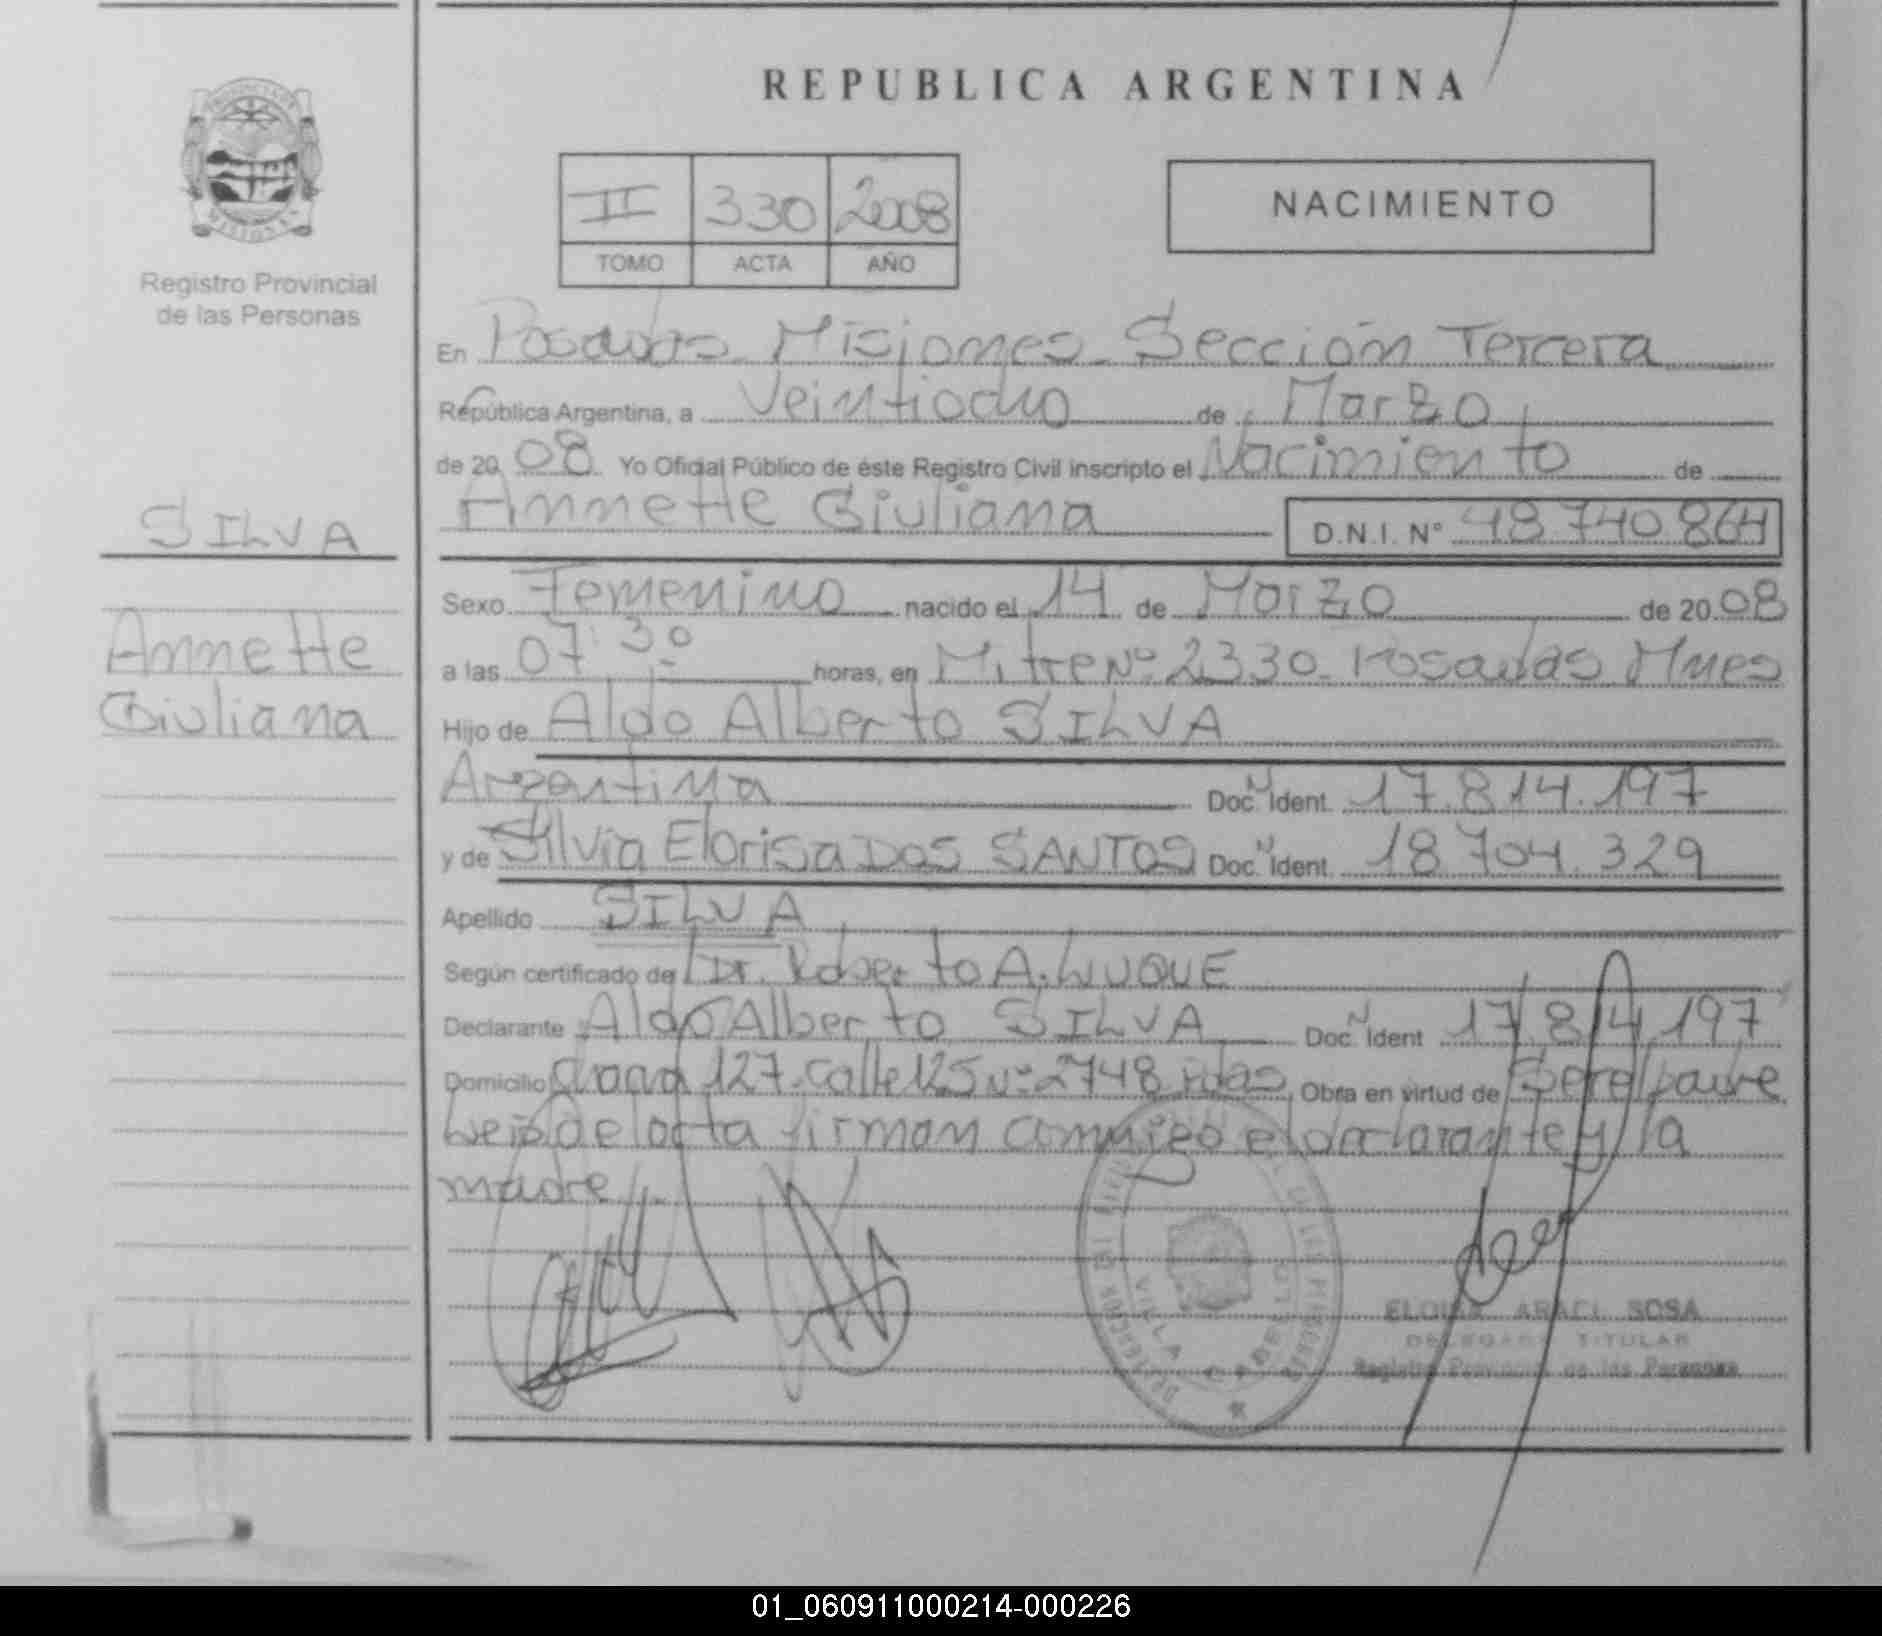 REPUBLICA ARGENTINA
II 330 2008
TOMO ACTA AÑO
NACIMIENTO
Registro Provincial
de las Personas
SILVA
Annette
Giuliana
En Posadas Misiones Sección Tercera
República Argentina, a Veintiocho de Marzo
de 2008 Yo Oficial Público de éste Registro Civil inscripto el Nacimiento de
Annette Giuliana D.N.I. N° 48 740 864
Sexo Femenino nacido el 14 de Marzo de 2008
a las 07:30 horas, en Mitre Nº 2330 Posadas Mnes
Hijo de Aldo Alberto SILVA
Argentina Doc. N Ident. 17.814.197
y de Silvia Elorisa DOS SANTOS Doc. N Ident. 18 704.329
Apellido SILVA
Según certificado de Dr. Roberto A. LUQUE
Declarante Aldo Alberto SILVA Doc. N Ident 17.814.197
Domicilio Chacra 127-Calle 125 Nº 2748 Pdas Obra en virtud de Ser el padre
Leida el acta firman conmigo el declarante y la
madre
VILLA CABELLO
ELOISA ARACI SOSA
DELEGADA TITULAR
Registro Provincial de las Personas
01_060911000214-000226